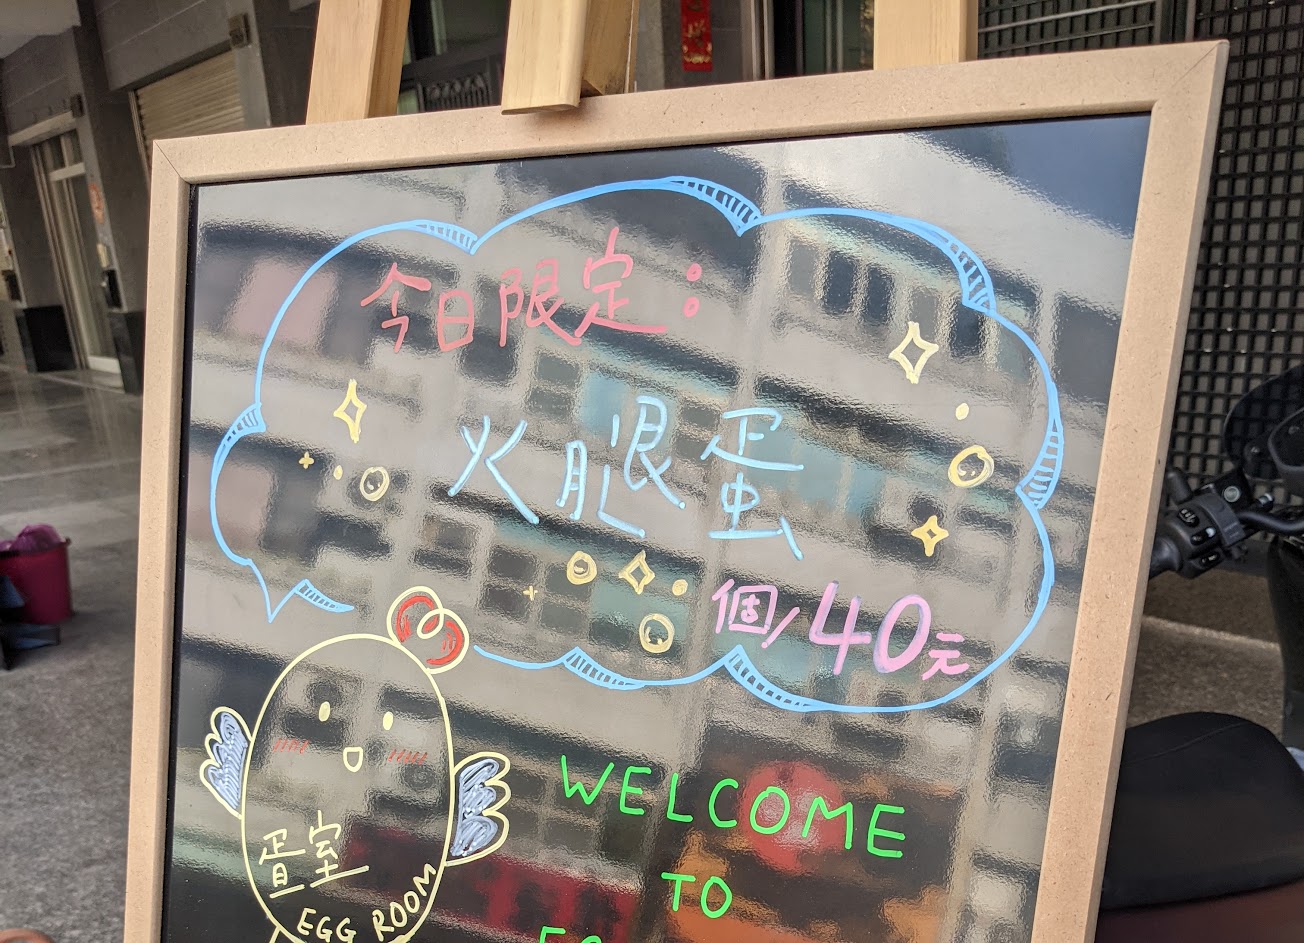 今日限定：
火腿蛋
個/40元
蛋室
EGG ROOM
WELCOME
TO